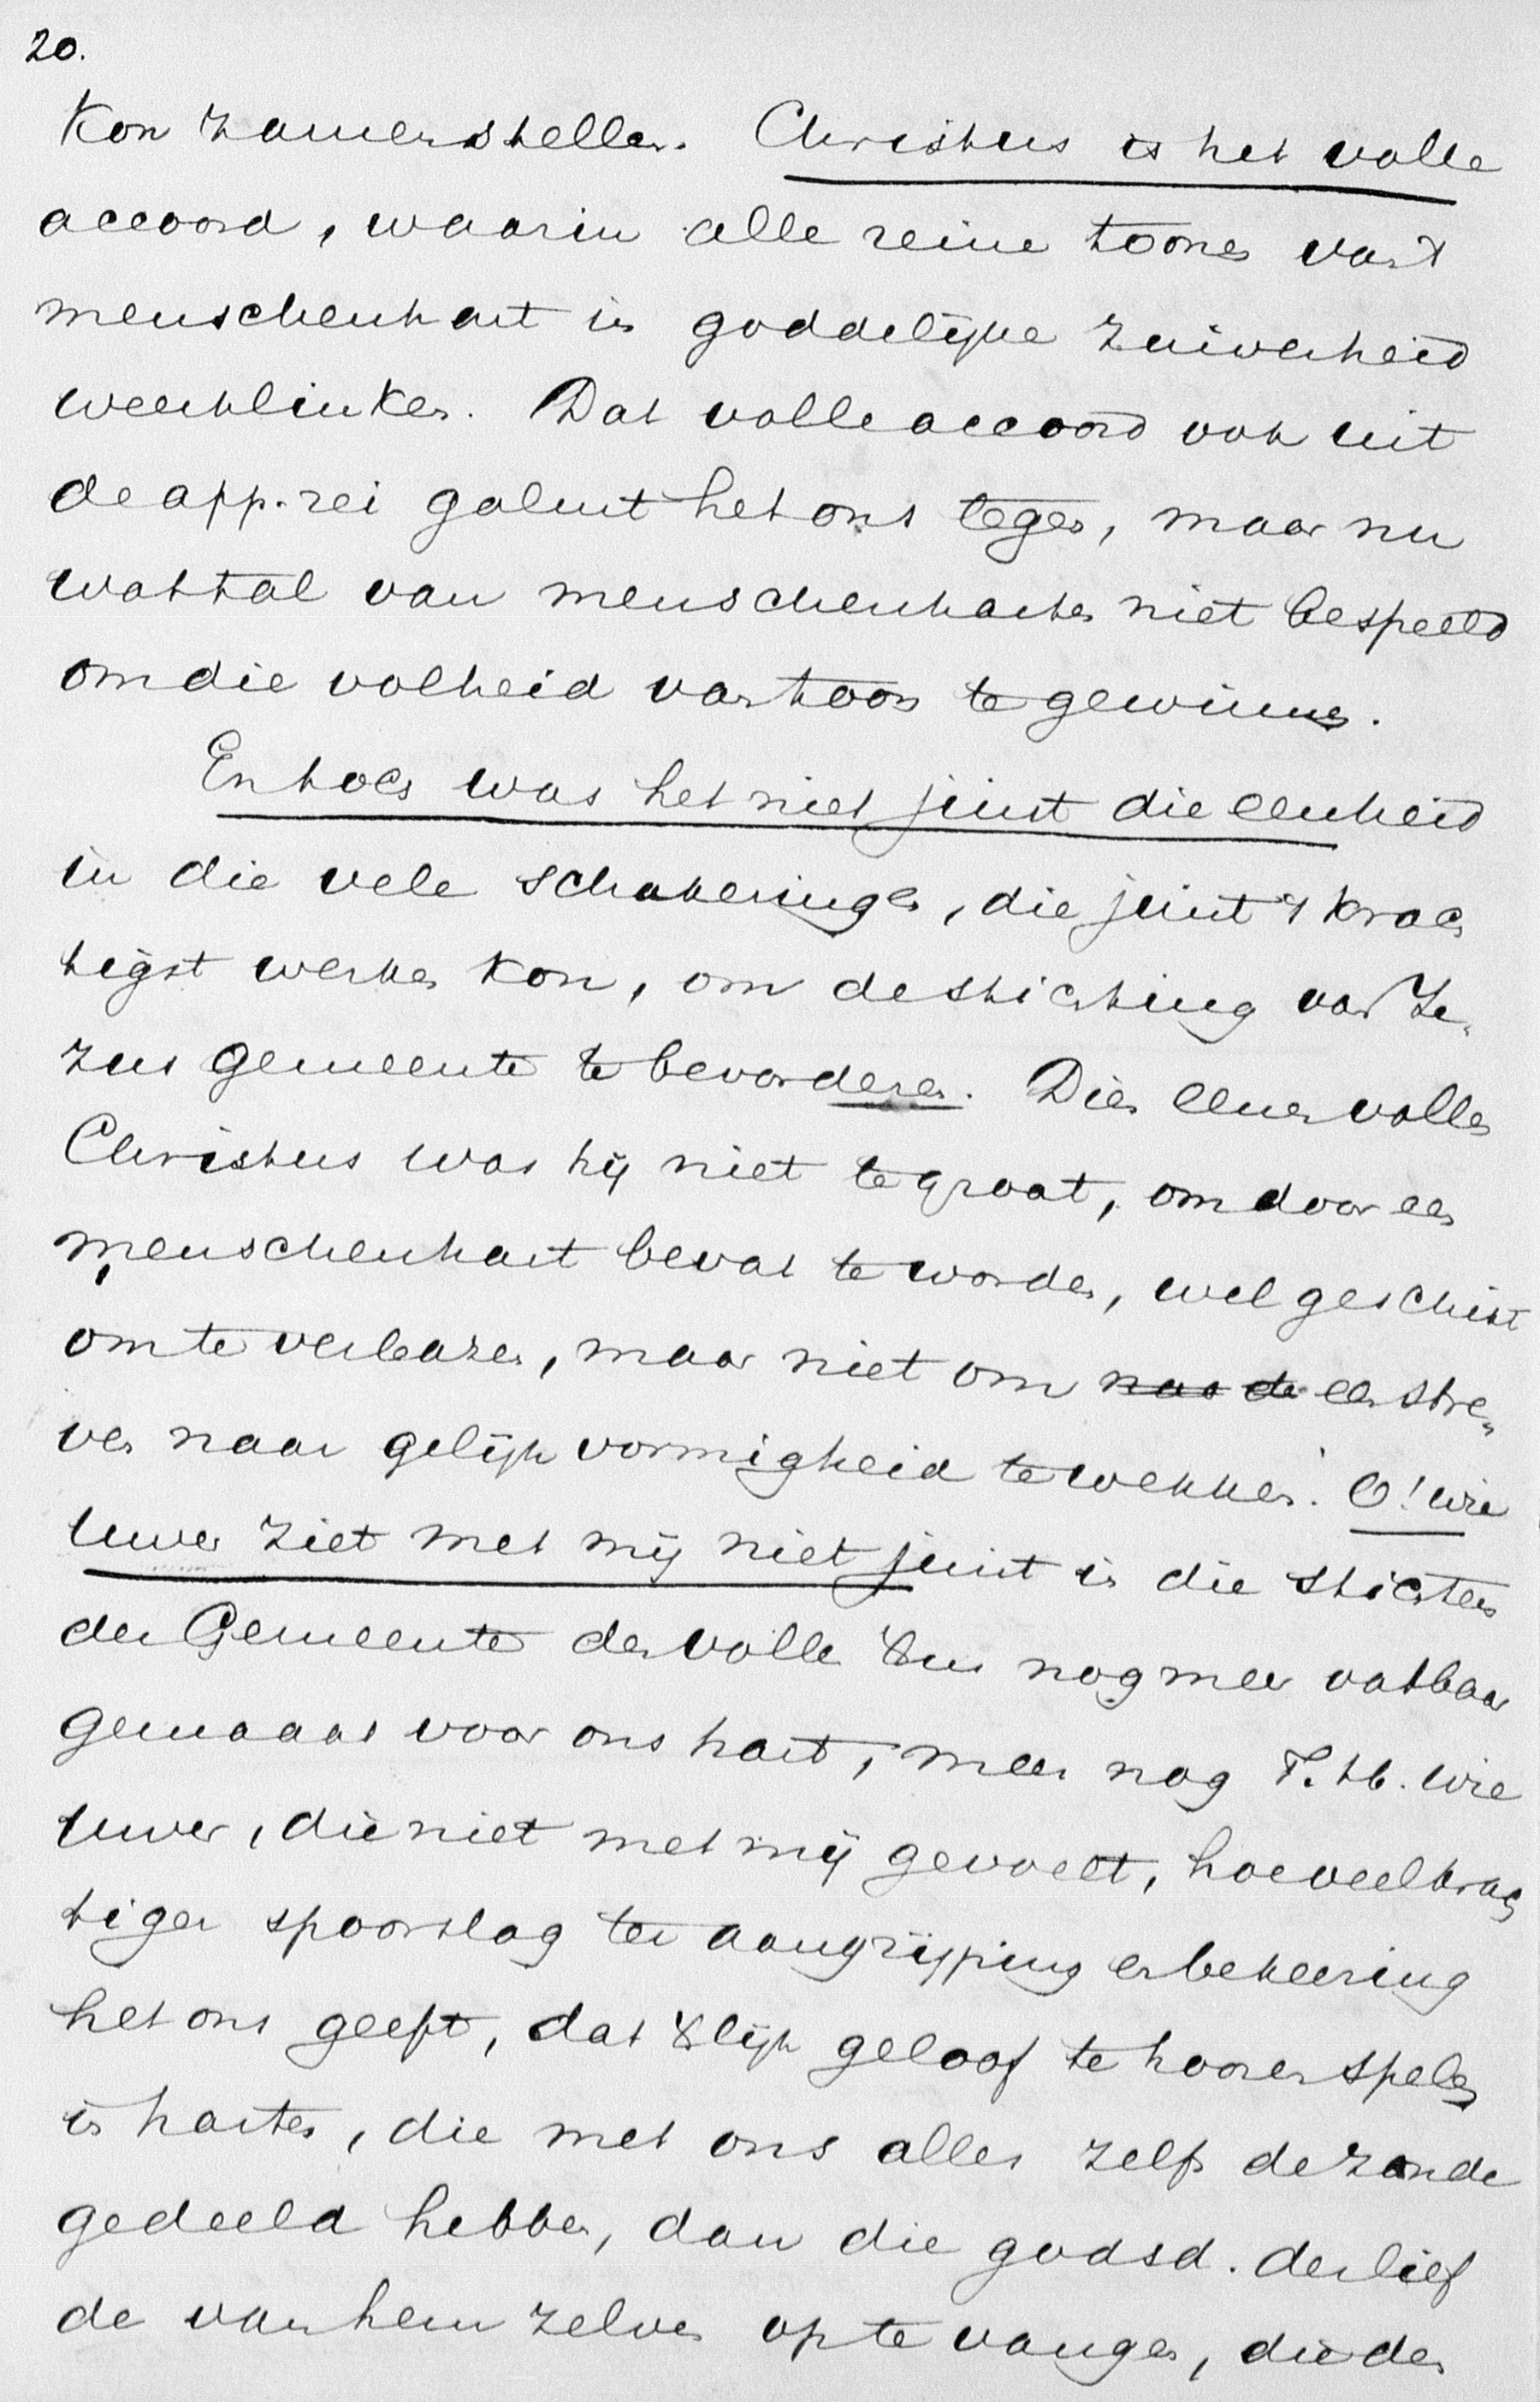 20.
Kon zamenstellen. Christus is het volle
accoord, waarin alle reine toonen van 't
menschenhart in goddelijke zuiverheid
weerklinken. Dat volle accoord ook uit
de app. rei galmt het ons tegen, maar nu
wat tal van menschenharten niet bespeeld
om die volheid van toon te gewinnen.
En toch was het niet juist die eenheid
in die vele schakeringen, die juist 't krach
tigst werken kon, om de stichting van Je„
zus gemeente te bevorderen. Dien eenen vollen
Christus was hij niet te groot, om door een
menschenhart bevat te worden, wel geschikt
om te verbazen, maar niet om een stre„
ven naar gelijkvormigheid te wekken. O! wie
uwer ziet met mij niet juist in die stichters
der Gemeente den volle Xus nog meer vatbaar
gemaakt voor ons hart, meer nog T. H. wie
uwer, die niet met mij gevoelt, hoeveel krach
tiger spoorslag ter aangrijping en bekeering
het ons geeft, dat Xlijk geloof te hooren spelen
in harten, die met ons allen zelfs de zonde
gedeeld hebben, dan die godsd. der lief
de van hem zelven op te vangen, die den